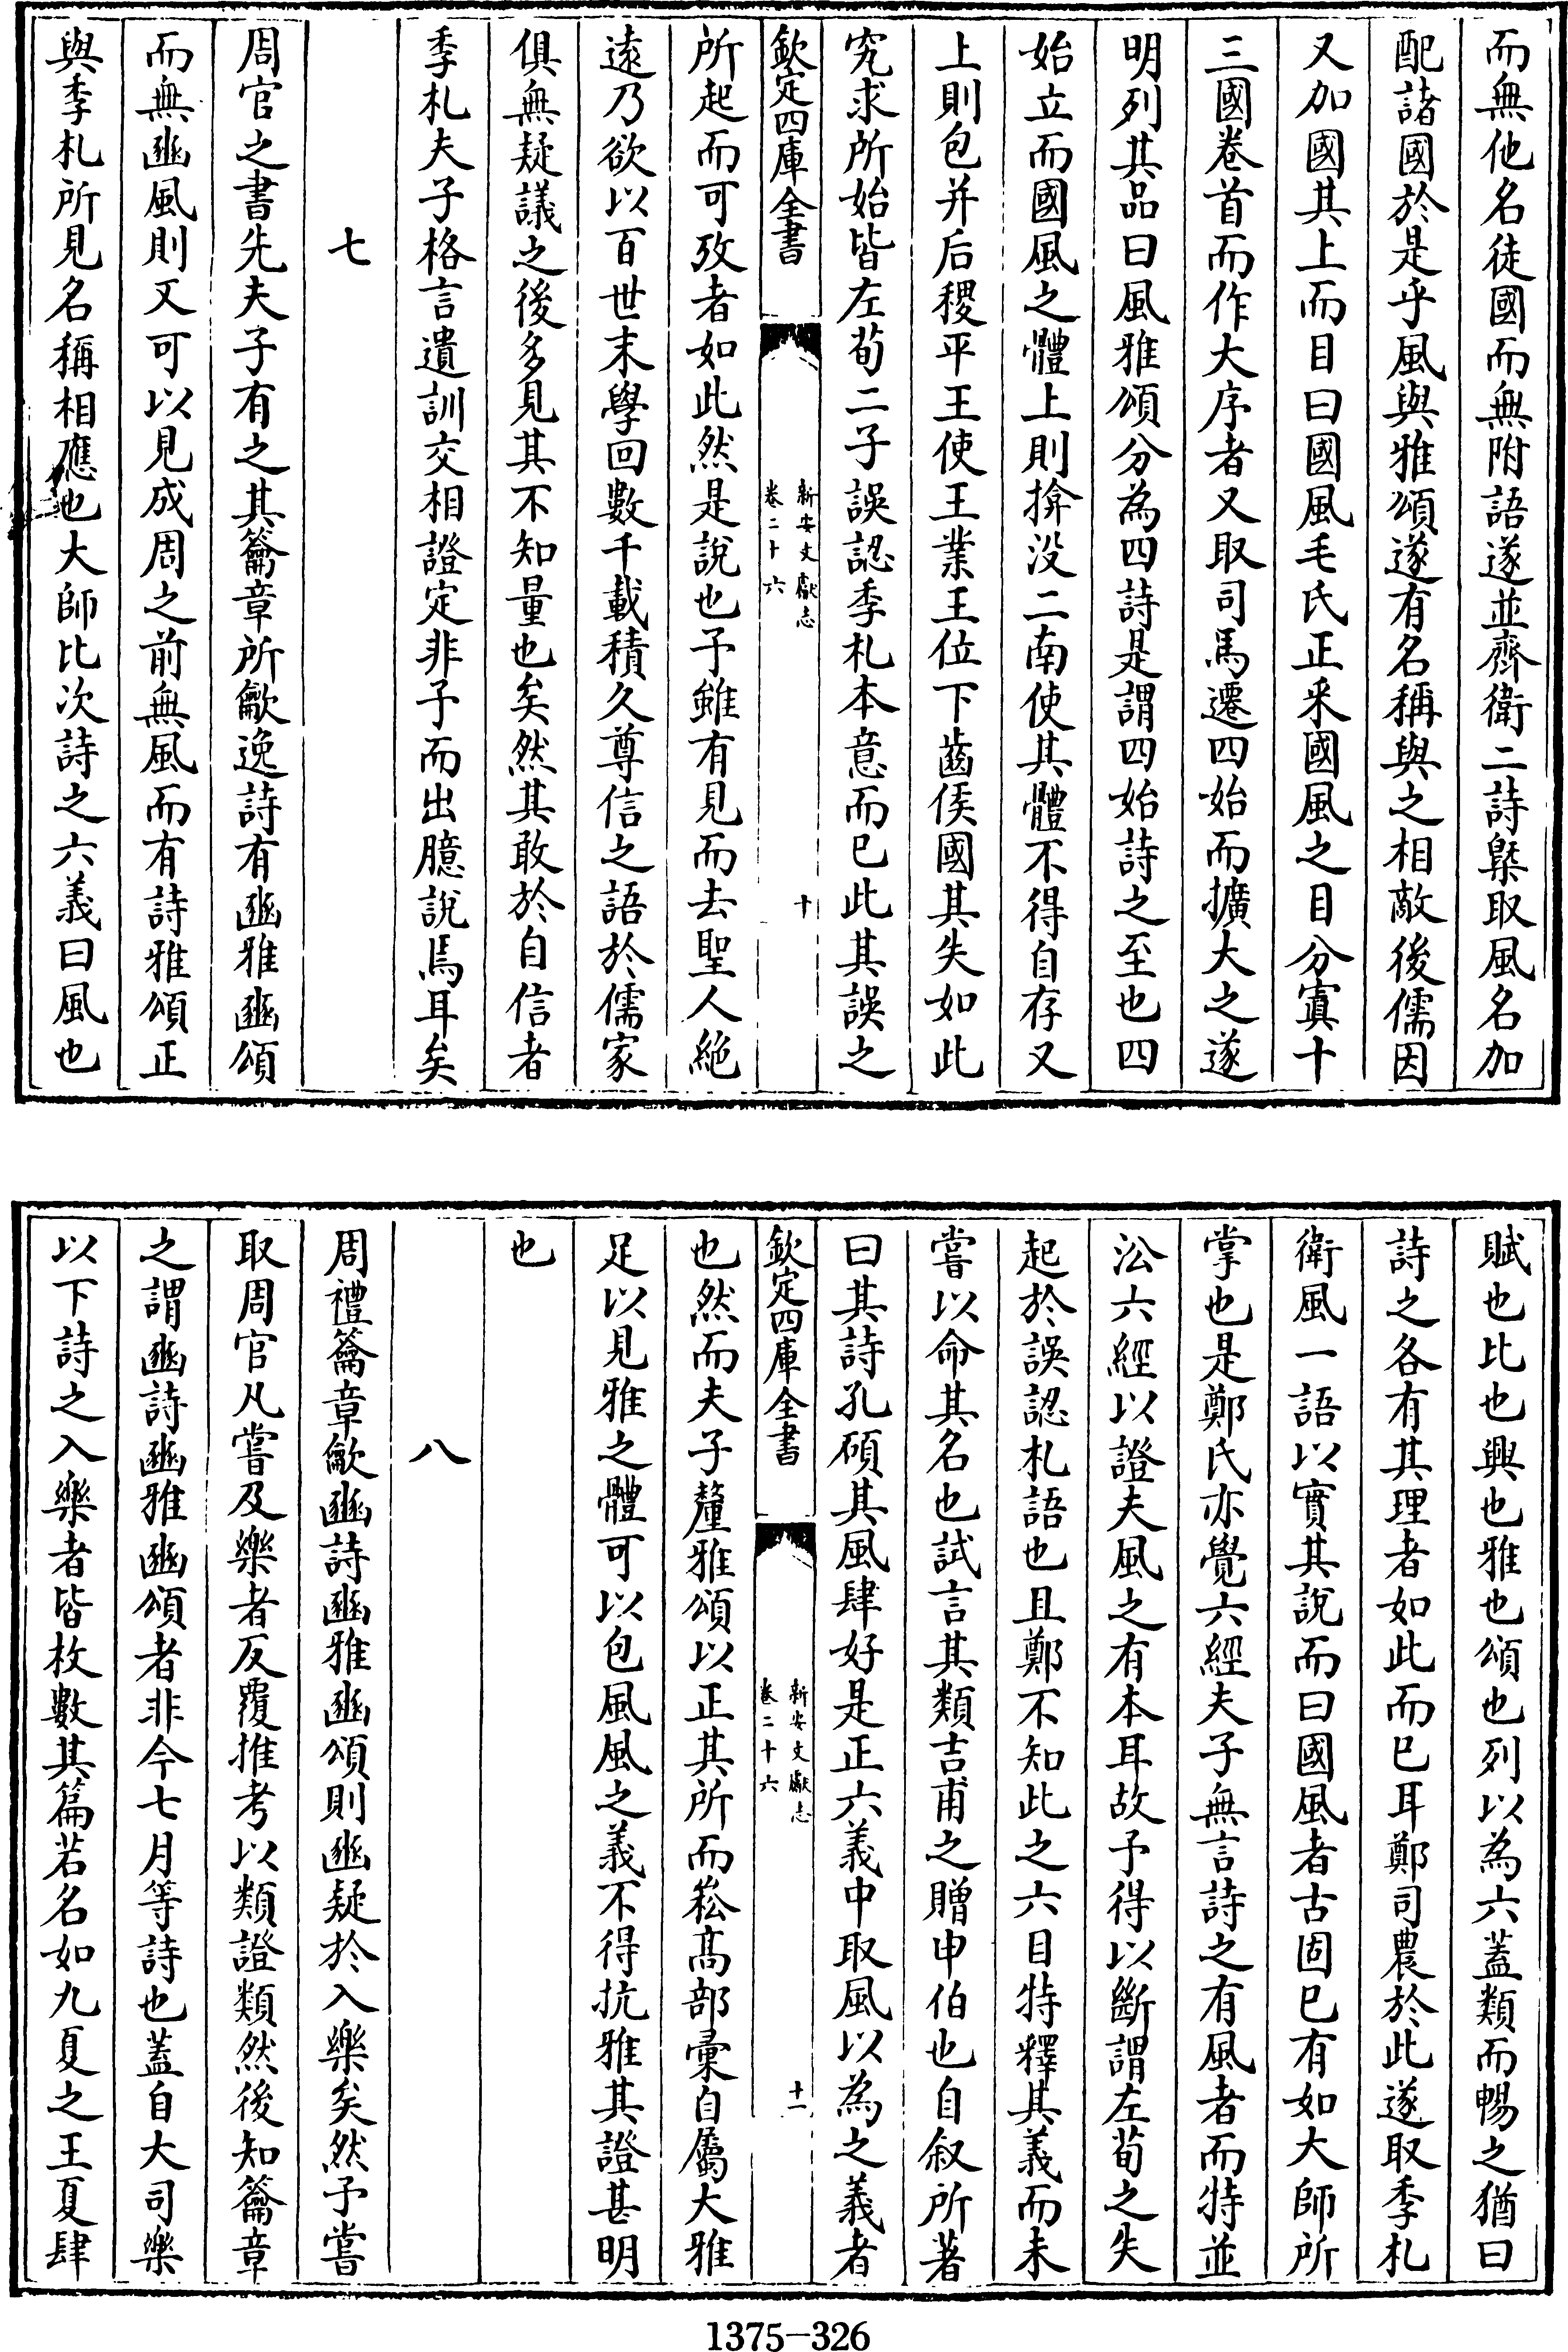 而無他名徒國而無附語遂並齊衛二詩槩取風名加
配諸國於是乎風與雅頌遂有名稱與之相敵後儒因
又加國其上而目曰國風毛氏正釆國風之目分寘十
三國卷首而作大序者又取司馬遷四始而擴大之遂
明列其品曰風雅頌分為四詩是謂四始詩之至也四
始立而國風之體上則揜没二南使其體不得自存又
上則包并后稷平王使王業王位下齒侯國其失如此
究求所始皆左荀二子誤認季札本意而已此其誤之
欽定四庫全書
新安文獻志
卷二十六
十
所起而可攷者如此然是說也予雖有見而去聖人絶
遠乃欲以百世末學回數千載積久尊信之語於儒家
俱無疑議之後多見其不知量也矣然其敢於自信者
季札夫子格言遺訓交相證定非予而出臆說焉耳矣
七
周官之書先夫子有之其籥章所龡逸詩有豳雅豳頌
而無豳風則又可以見成周之前無風而有詩雅頌正
與季札所見名稱相應也大師比次詩之六義曰風也
賦也比也興也雅也頌也列以為六蓋類而暢之猶曰
詩之各有其理者如此而已耳鄭司農於此遂取季札
衛風一語以實其說而曰國風者古固已有如大師所
掌也是鄭氏亦覺六經夫子無言詩之有風者而特並
㳂六經以證夫風之有本耳故予得以斷謂左荀之失
起於誤認札語也且鄭不知此之六目特釋其義而未
嘗以命其名也試言其類吉甫之贈申伯也自叙所著
曰其詩孔碩其風肆好是正六義中取風以為之義者
欽定四庫全書
新安文獻志
卷二十六
十一
也然而夫子釐雅頌以正其所而崧髙部彚自屬大雅
足以見雅之體可以包風風之義不得抗雅其證甚明
也
八
周禮籥章龡豳詩豳雅豳頌則豳疑於入樂矣然予嘗
取周官凡嘗及樂者反覆推考以類證類然後知籥章
之謂豳詩豳雅豳頌者非今七月等詩也蓋自大司樂
以下詩之入樂者皆枚數其篇若名如九夏之王夏肆
1375-326